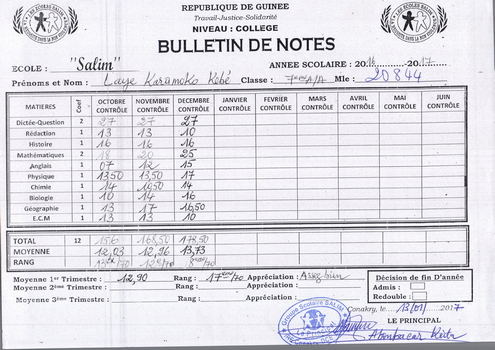 REPUBLIQUE DE GUINEE
Travail-Justice-Solidarité
NIVEAU : COLLEGE
BULLETIN DE NOTES
ECOLE : "Salim" ANNEE SCOLAIRE : 2016 2017
Prénoms et Nom : Laye Karamoko Kébé Classe : 7ème A/A Mle : 20844
MATIERES Coef OCTOBRE CONTRÔLE NOVEMBRE CONTRÔLE DECEMBRE CONTRÔLE JANVIER CONTRÔLE FEVRIER CONTRÔLE MARS CONTRÔLE AVRIL CONTRÔLE MAI CONTRÔLE JUIN CONTRÔLE
Dictée-Question 2 27 27 27
Rédaction 1 13 13 10
Histoire 1 16 16 16
Mathématiques 2 18 20 25
Anglais 1 07 12 15
Physique 1 13,50 13,50 17
Chimie 1 14 14 
Biologie 1 10 14 16
Géographie 1 13 17 16,50
E.C.M 1 13 13 10
TOTAL 12 156 168,50 178,50
MOYENNE 12,03 12,96 13,73
RANG
Moyenne 1er Trimestre : 12,90 Rang : 17ème/70 Appréciation : Assez bien
Moyenne 2ème Trimestre : Rang : Appréciation :
Moyenne 3ème Trimestre : Rang : Appréciation :
Décision de fin D'année
Admis :
Redouble :
Conakry, le 13/01/2017
LE PRINCIPAL
Groupe Scolaire SALIM
Le Principal
Aboubacar Keita